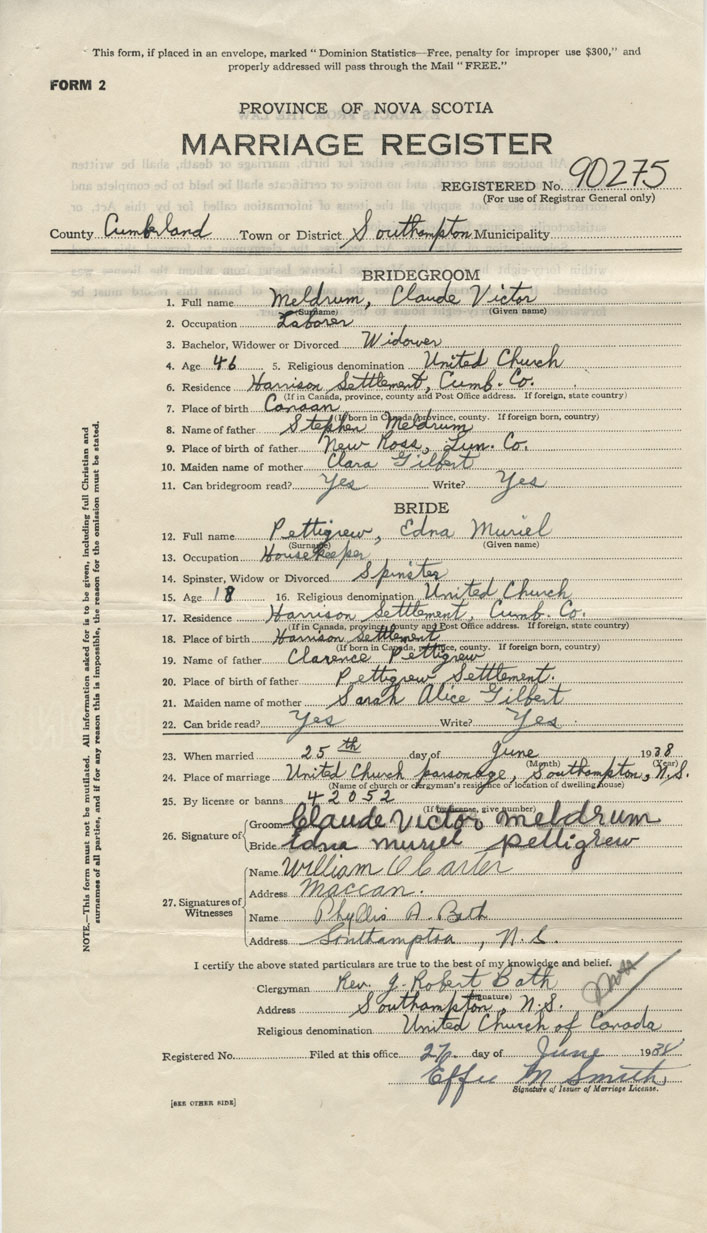 This form, if placed in an envelope, marked "Dominion Statistics—Free, penalty for improper use $300," and
properly addressed will pass through the Mail "FREE."
FORM 2
PROVINCE OF NOVA SCOTIA
MARRIAGE REGISTER
REGISTERED No. 90275
(For use of Registrar General only)
County Cumberland Town or District Southampton Municipality
BRIDEGROOM
1. Full name Meldrum, Claude Victor
(Surname) (Given name)
2. Occupation Laborer
3. Bachelor, Widower or Divorced Widower
4. Age 46 5. Religious denomination United Church
6. Residence Harrison Settlement, Cumb. Co.
(If in Canada, province, county and Post Office address. If foreign, state country)
7. Place of birth Canaan
(If born in Canada, province, county. If foreign born, country)
8. Name of father Stephen Meldrum
9. Place of birth of father New Ross, Lun. Co.
10. Maiden name of mother Clara Gilbert
11. Can bridegroom read? Yes Write? Yes
BRIDE
12. Full name Pettigrew, Edna Muriel
(Surname) (Given name)
13. Occupation Housekeeper
14. Spinster, Widow or Divorced Spinster
15. Age 18 16. Religious denomination United Church
17. Residence Harrison Settlement, Cumb. Co.
(If in Canada, province, county and Post Office address. If foreign, state country)
18. Place of birth Harrison Settlement
(If born in Canada, province, county. If foreign born, country)
19. Name of father Clarence Pettigrew
20. Place of birth of father Pettigrew Settlement.
21. Maiden name of mother Sarah Alice Gilbert
22. Can bride read? Yes Write? Yes
23. When married 25th day of June 1938
(Month) (Year)
24. Place of marriage United Church parsonage, Southampton, N.S.
(Name of church or clergyman's residence or location of dwelling house)
25. By license or banns 42052
(If by license, give number)
26. Signature of
Groom Claude Victor Meldrum
Bride Edna Muriel Pettigrew
27. Signatures of Witnesses
Name William O Carter
Address Maccan.
Name Phyllis A. Bath
Address Southampton, N.S.
I certify the above stated particulars are true to the best of my knowledge and belief.
Clergyman Rev. J. Robert Bath
(Signature)
Address Southampton, N.S.
Religious denomination United Church of Canada
Registered No. Filed at this office 27. day of June 1938
Effie M Smith
Signature of Issuer of Marriage License.
[SEE OTHER SIDE]
NOTE.—This form must not be mutilated. All information asked for is to be given, including full Christian and
surnames of all parties, and if for any reason this is impossible, the reason for the omission must be stated.